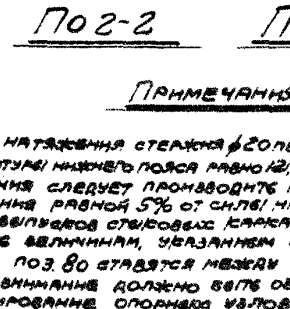 По 2-2
Примечания
натяжения стержня ϕ20пе
туры нижнего пояса равно 12,
ния следует производить
ния равной 5% от силы н
выпусков стыковых карка
величинам, указанным
поз. 80 ставятся между
внимание должно быть об
ирование опорных узлов